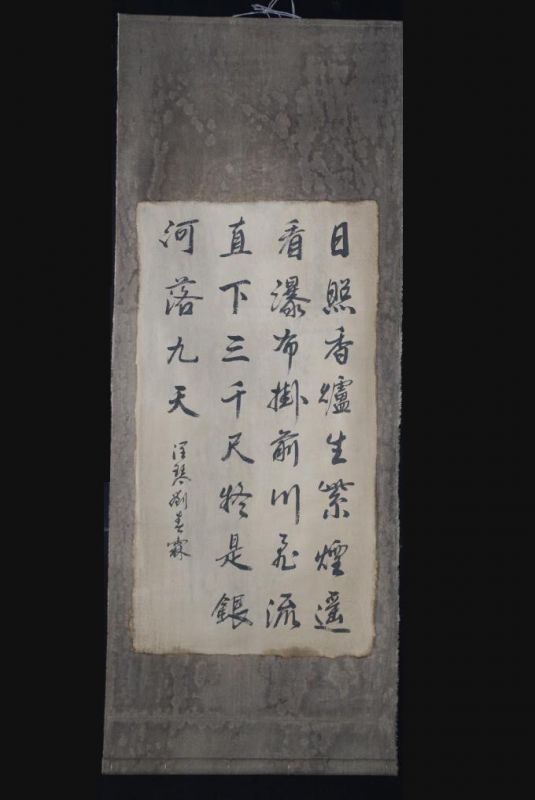 日照香爐生紫煙遥
看瀑布掛前川飛流
直下三千尺疑是銀
河落九天
潤琴劉春霖